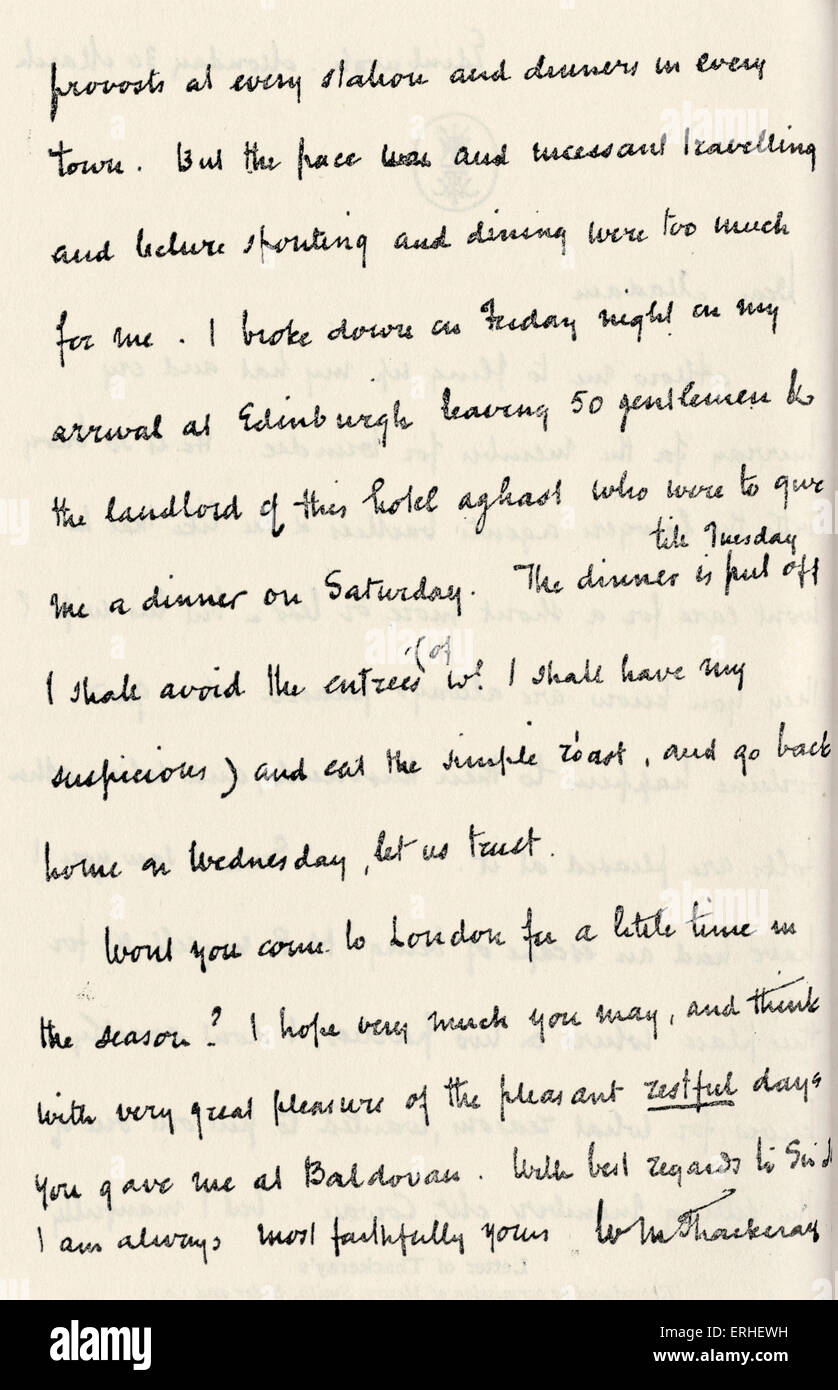 provosts at every station and dinners in every
town. But the pace was and incessant travelling
and lecture spouting and dining were too much
for me. I broke down on Friday night on my
arrival at Edinburgh leaving 50 gentlemen &
the landlord of this hotel aghast who were to give
me a dinner on Saturday. The dinner is put off
till Tuesday
I shall avoid the entrées (of wh. I shall have my
suspicions) and eat the simple roast, and go back
home on Wednesday, let us trust.
Wont you come to London for a little time in
the season? I hope very much you may, and think
with very great pleasure of the pleasant restful days
you gave me at Baldovan. With best regards to Sir J
I am always most faithfully yours WM Thackeray
Letter of Thackeray's
alamy
alamy stock photo
ERHEWH
www.alamy.com